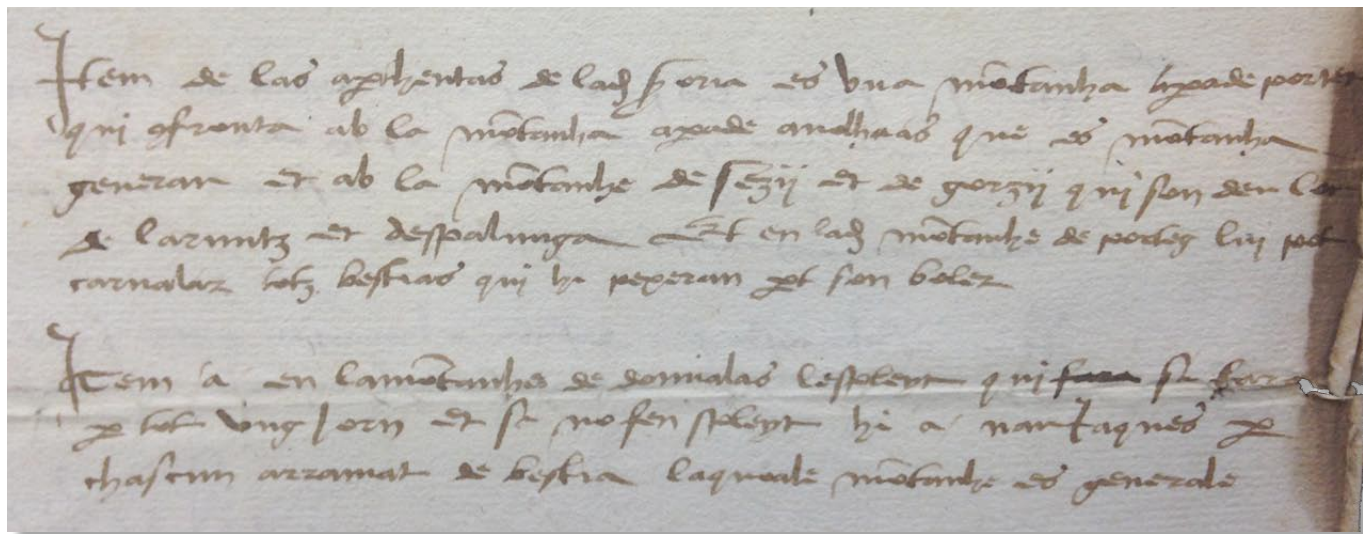 Item de las apthentas de lad sr oria es una montanha apade porteg
qui confronta ab la montanha apade anolhaas que es montanha
generau et ab la montanhe de sezii et de gorzii qui son deu loc
de laruntz et despalunga Et en lad montanhe de porteg lui pot
carnalar totz bestias qui hi pexeran part son voler
Item a en la montanhe de donualas lespleyt qui se far
per tot ung jorn et si no fen spleyt hi a nau jaques per
chascun arramat de bestia laquoale montanhe es generale